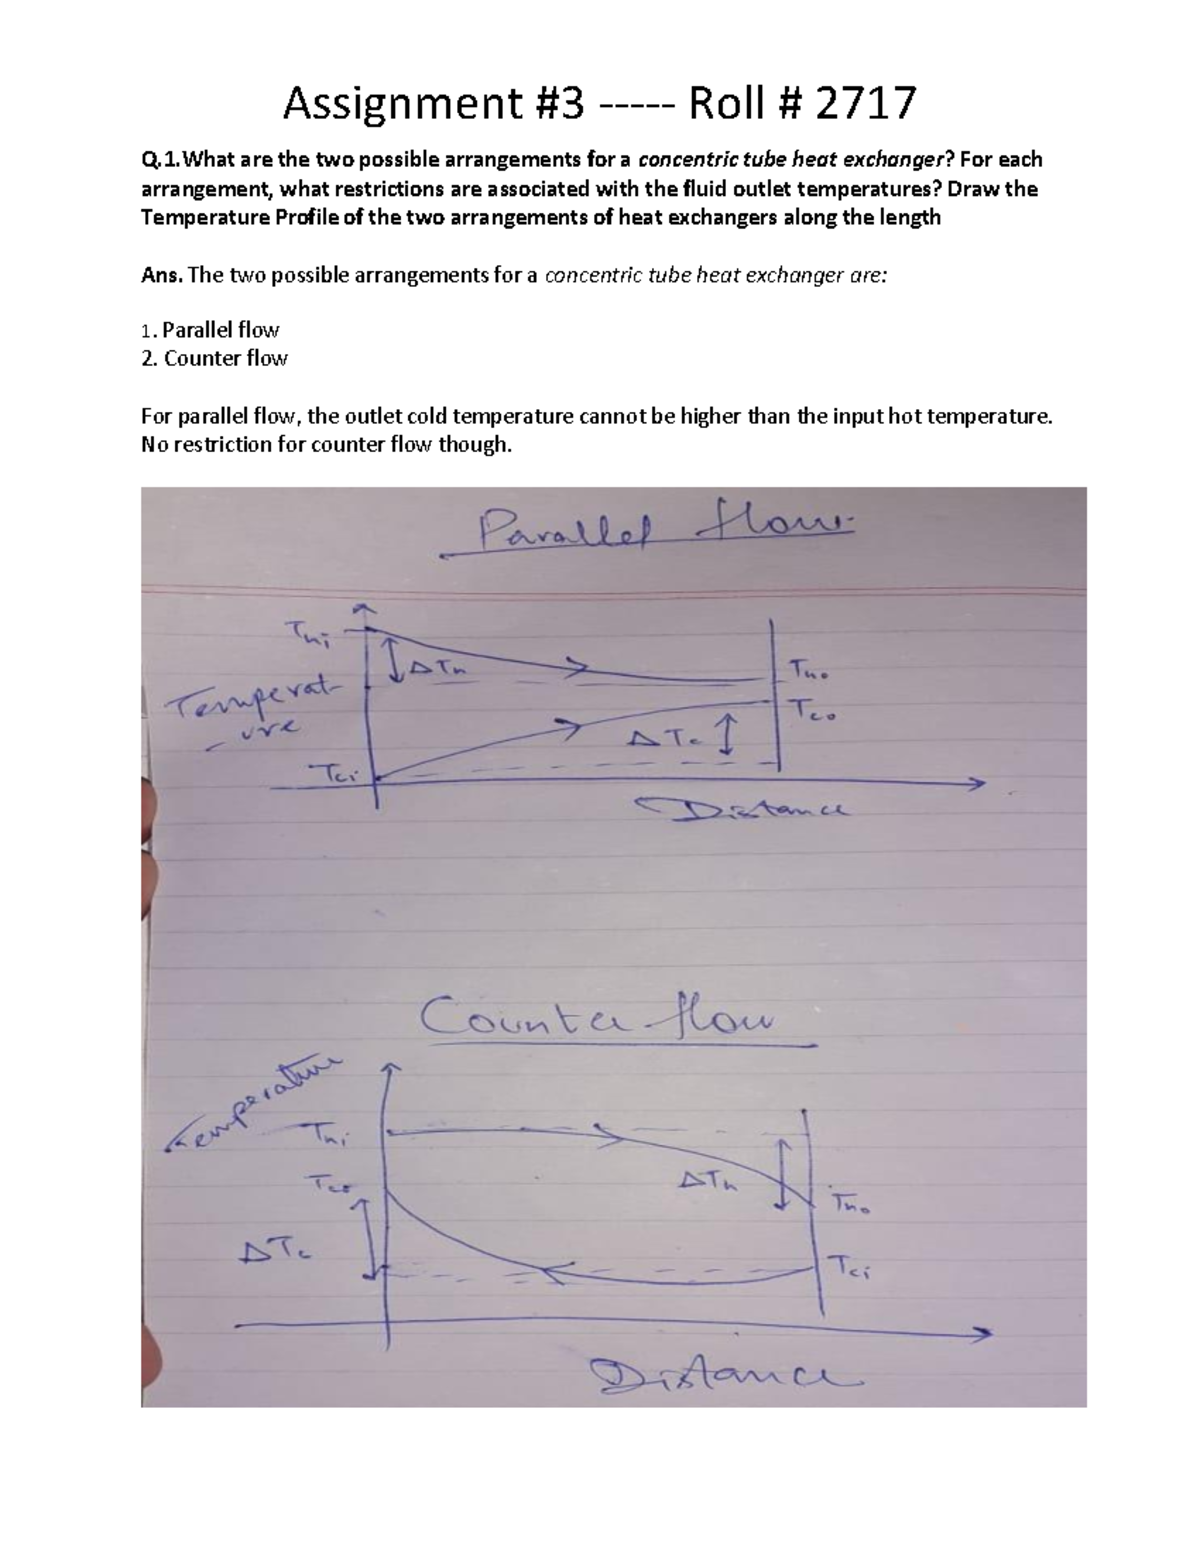 Assignment #3 ----- Roll # 2717
Q.1.What are the two possible arrangements for a concentric tube heat exchanger? For each
arrangement, what restrictions are associated with the fluid outlet temperatures? Draw the
Temperature Profile of the two arrangements of heat exchangers along the length
Ans. The two possible arrangements for a concentric tube heat exchanger are:
1. Parallel flow
2. Counter flow
For parallel flow, the outlet cold temperature cannot be higher than the input hot temperature.
No restriction for counter flow though.
Parallel flow.
Thi
ΔTh
Tho
Temperat-
-ure
Tco
ΔTc
Tci
Distance
Counter flow
Temperature
Thi
Tco
ΔTh
Tho
ΔTc
Tci
Distance